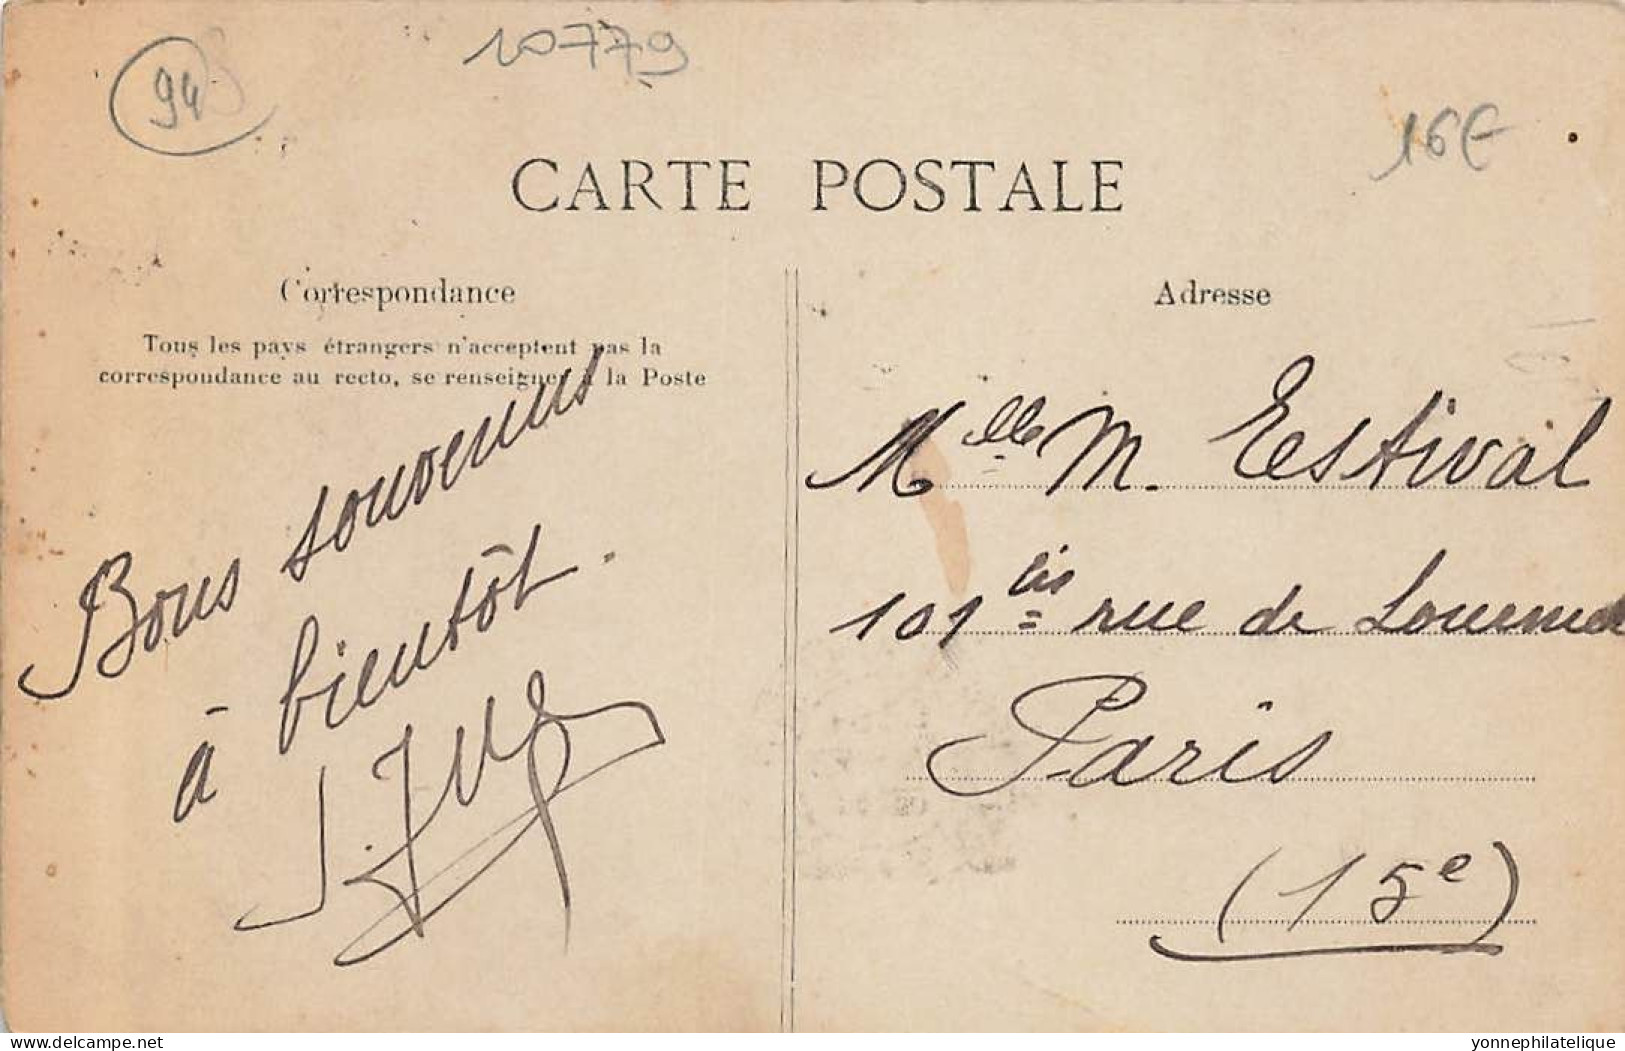 94
10779
16€
CARTE POSTALE
Correspondance
Tous les pays étrangers n'acceptent pas la
correspondance au recto, se renseigner à la Poste
Bons souvenirs
à bientôt.
Adresse
Mlle M. Estival
101 bis rue de Lourmel
Paris
(15e)
www.delcampe.net
yonnephilatelique